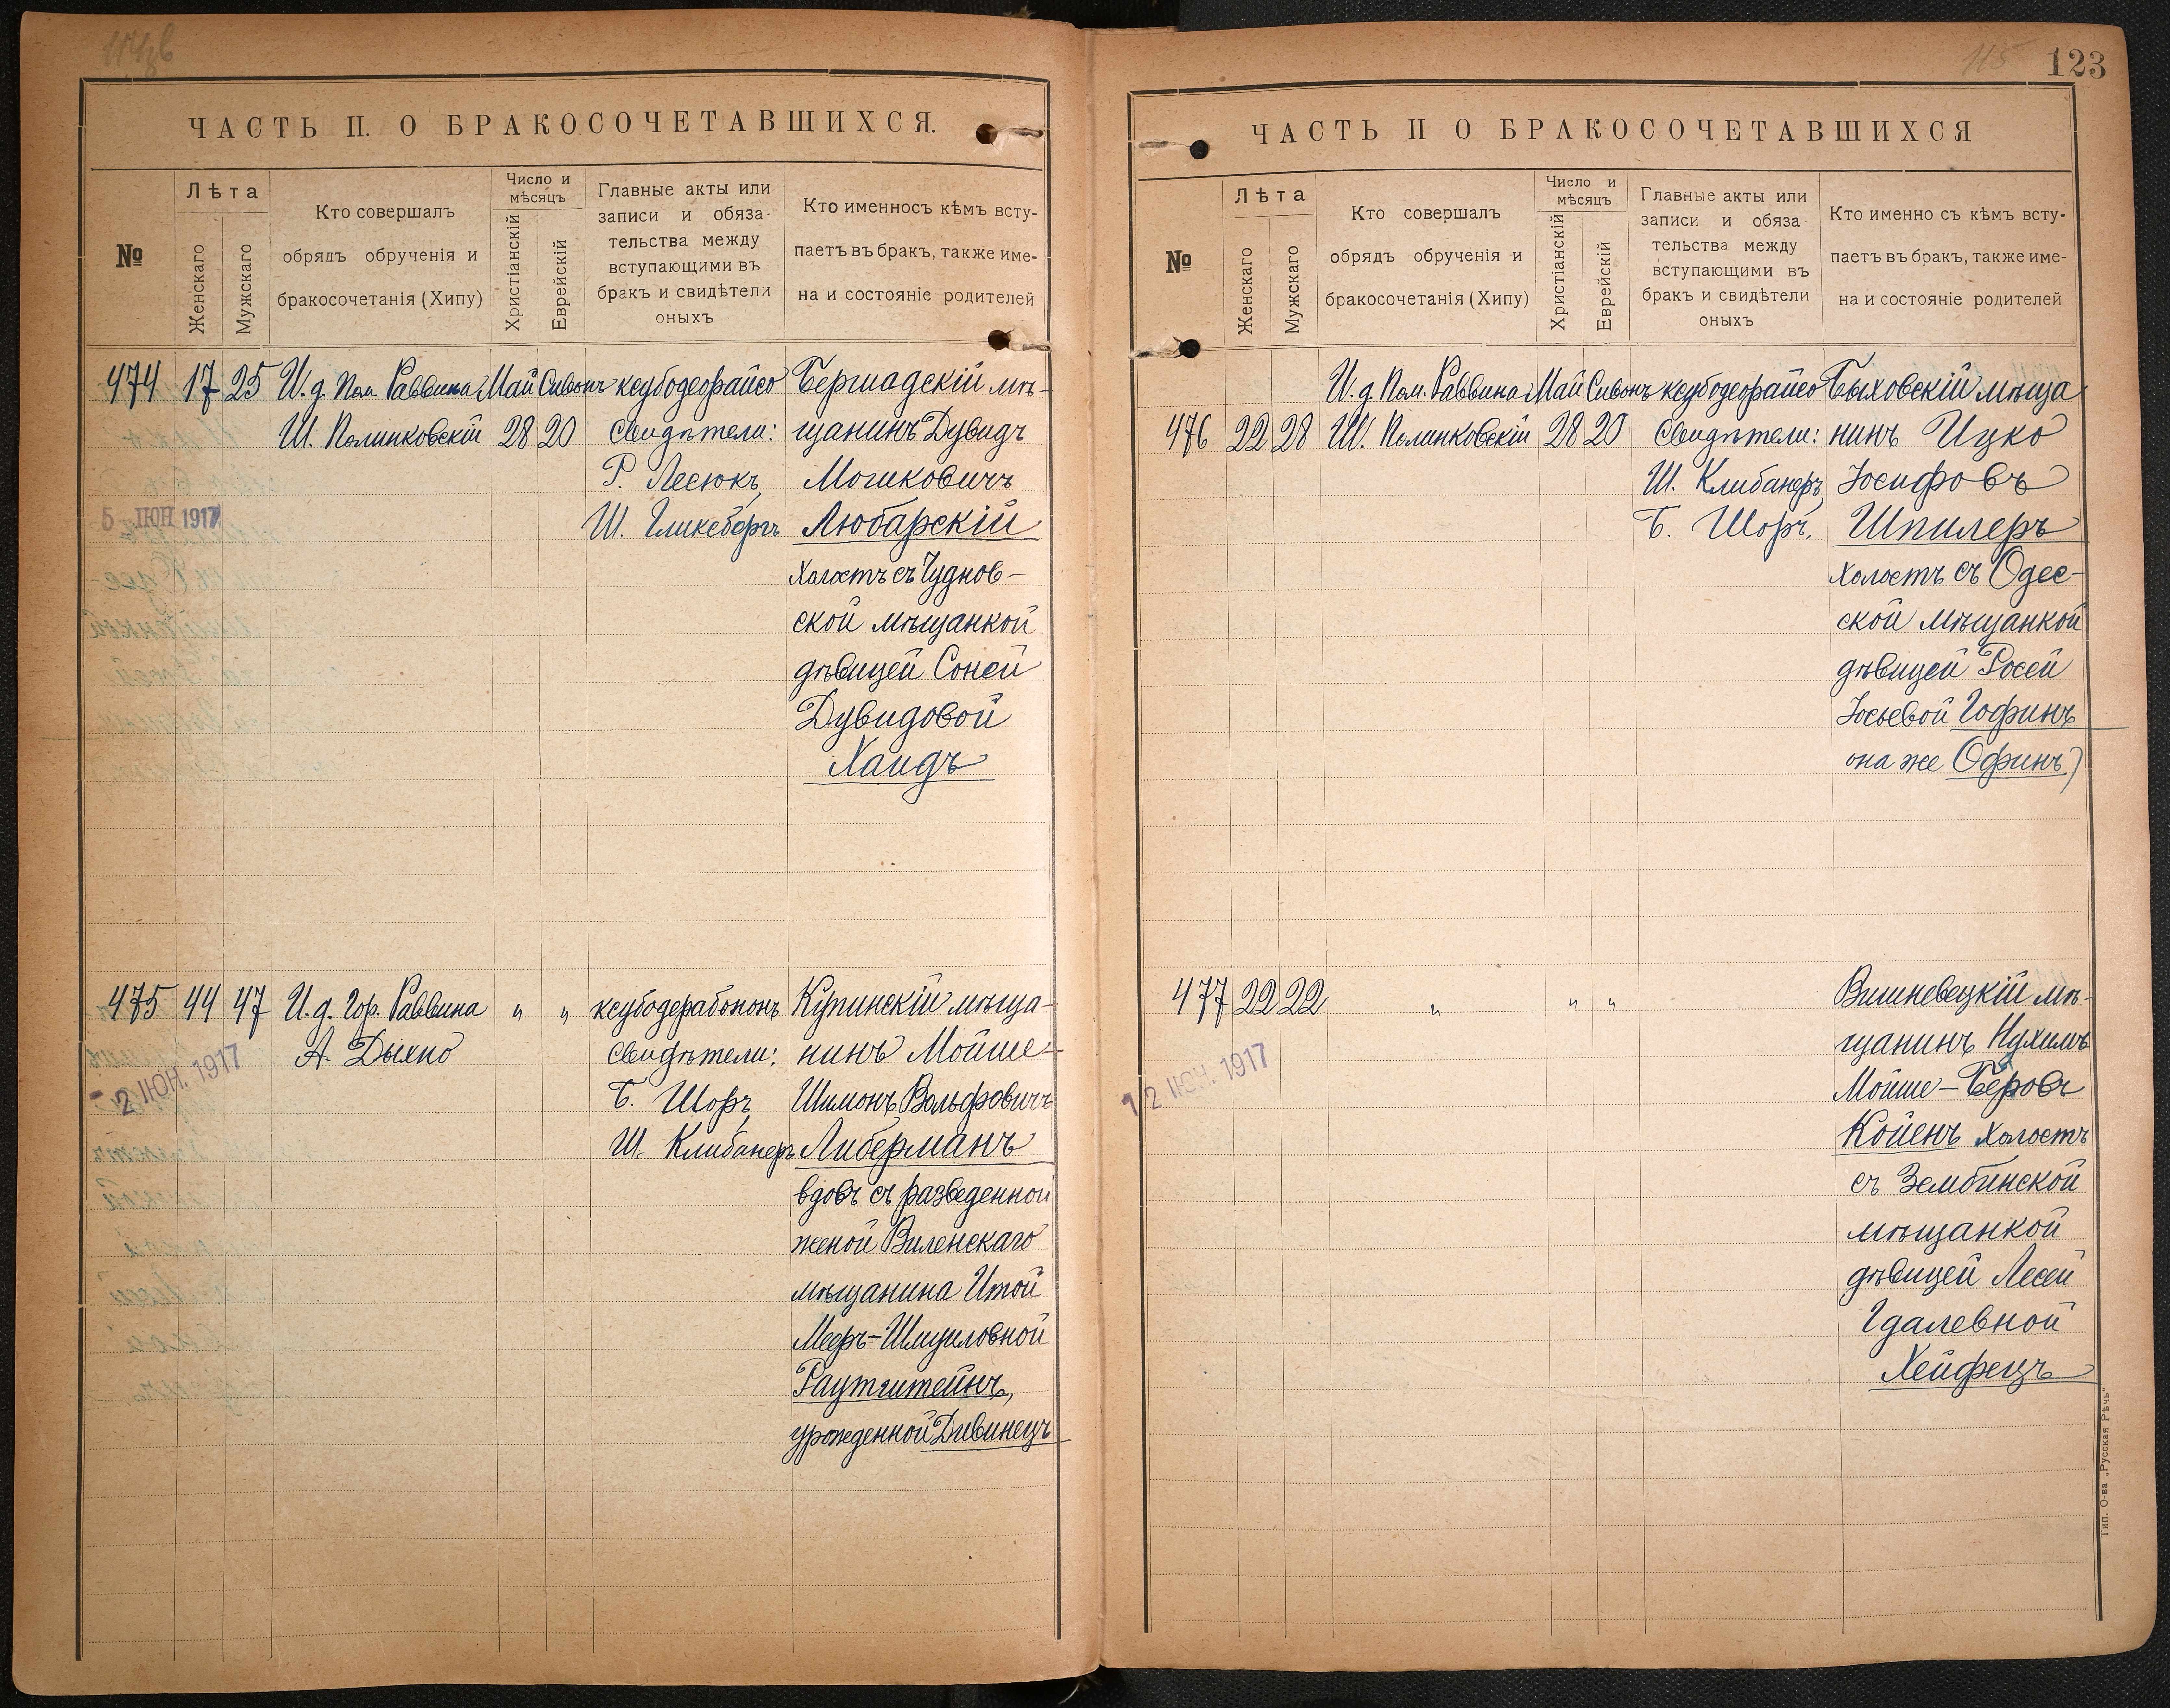 ЧАСТЬ II. О БРАКОСОЧЕТАВШИХСЯ.
№
Лѣта
Женскаго
Мужскаго
Кто совершалъ
обрядъ обрученія и
бракосочетанія (Хипу)
Число и
мѣсяцъ
Христіанскій
Еврейскій
Главные акты или
записи и обяза-
тельства между
вступающими въ
бракъ и свидѣтели
оныхъ
Кто именносъ кѣмъ всту-
паетъ въ бракъ, также име-
на и состояніе родителей
474 17 25 И.д. Пом. Раввина Май Сивонъ ксубодеорайсо Бершадскій мѣ-
Ш. Полинковскій 28 20 Свидѣтели: щанинъ Дувидъ
Р. Лесюкъ, Мошковичъ
5 ІЮН 1917
Ш. Гликсбергъ Любарскій
Холостъ съ Чуднов-
ской мѣщанкой
дѣвицей Соней
Дувидовой
Хаидъ
475 44 47 И.д. Гор. Раввина " " ксубодерабононъ Купинскій мѣща-
А. Дыхно Свидѣтели: нинъ Мойше-
- 2 ІЮН. 1917
Б. Шоръ, Шимонъ Вольфовичъ
Ш. Клибанеръ Либерманъ
вдовъ съ разведенной
женой Виленскаго
мѣщанина Итой
Мееръ-Шмуиловной
Раутштейнъ,
урожденной Дивинецъ
123
115
ЧАСТЬ II О БРАКОСОЧЕТАВШИХСЯ
№
Лѣта
Женскаго
Мужскаго
Кто совершалъ
обрядъ обрученія и
бракосочетанія (Хипу)
Число и
мѣсяцъ
Христіанскій
Еврейскій
Главные акты или
записи и обяза
тельства между
вступающими въ
бракъ и свидѣтели
оныхъ
Кто именно съ кѣмъ всту-
паетъ въ бракъ, также име-
на и состояніе родителей
И.д. Пом. Раввина Май Сивонъ ксубодеорайсо Быховскій мѣща
476 22 28 Ш. Полинковскій 28 20 Свидѣтели: нинъ Ицко
Ш. Клибанеръ, Іосифовъ
Б. Шоръ. Шпилеръ
Холостъ съ Одес-
ской мѣщанкой
дѣвицей Росей
Іосьевой Гофинъ
она же Офинъ)
477 22 22 " " " Вишневецкій мѣ-
щанинъ Нухимъ
12 ІЮН. 1917
Мойше-Беровъ
Койенъ Холостъ
съ Зембинской
мѣщанкой
дѣвицей Лесей
Гдалевной
Хейфецъ
Тип. О-ва „Русская Рѣчь"